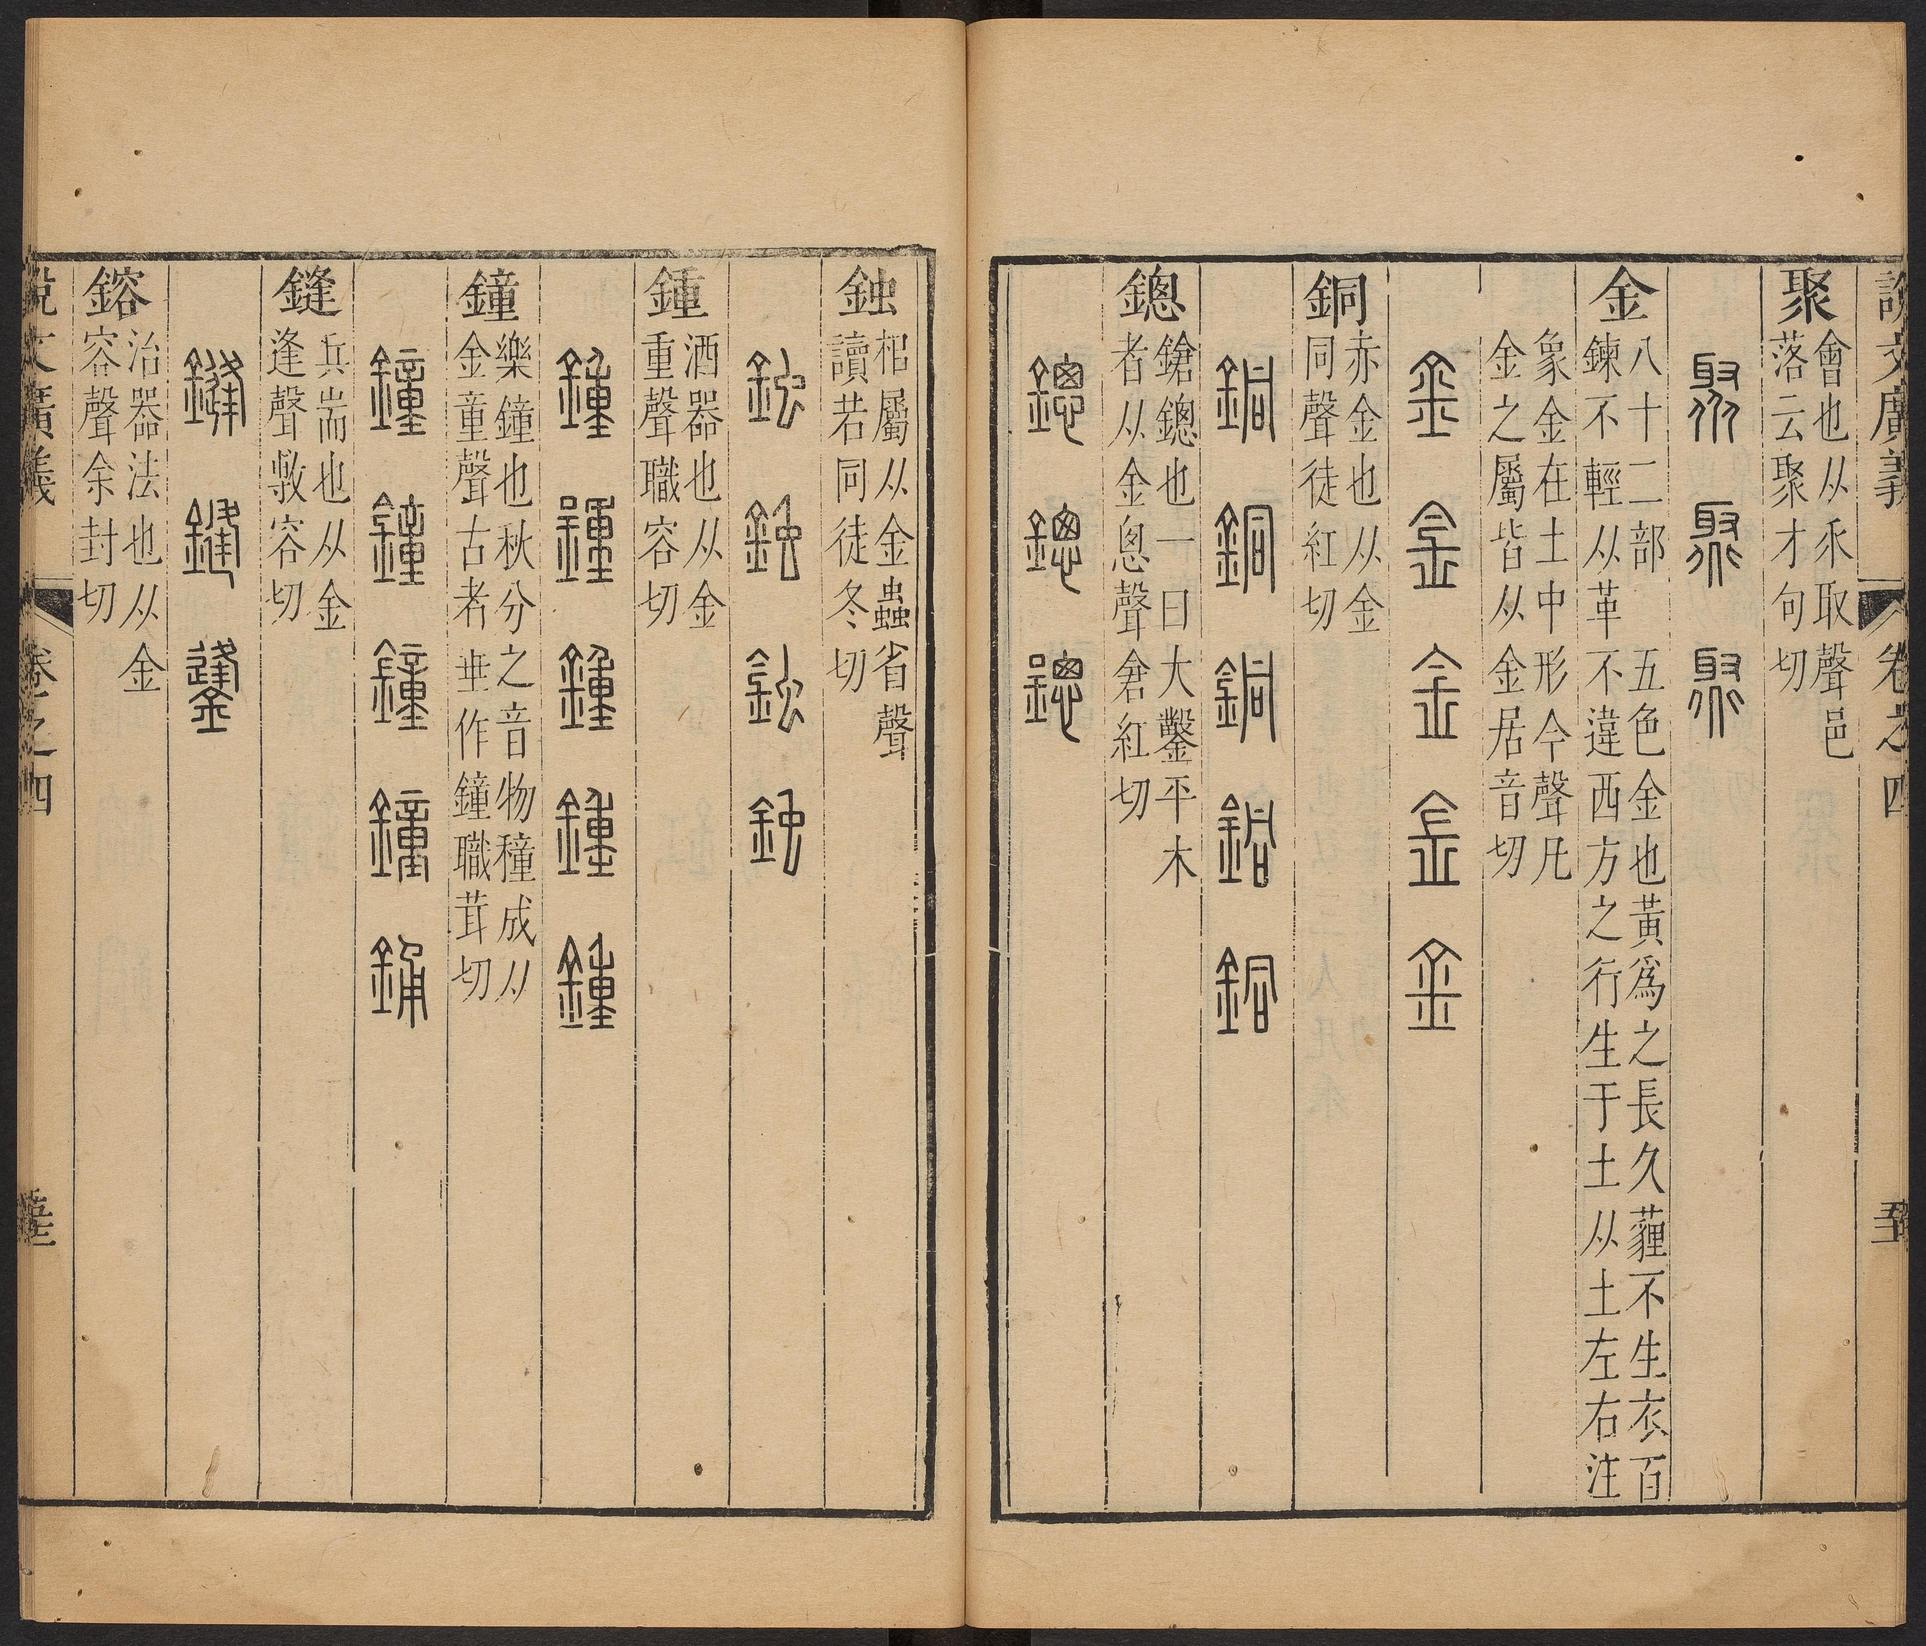 說文廣義 卷之四
聚 會也从乑取聲邑
落云聚才句切
聚 聚 聚
金 八十二部 五色金也黃爲之長久薶不生衣百
鍊不輕从革不違西方之行生于土从土左右注
象金在土中形今聲凡
金之屬皆从金居音切
金 金 金 金 金
銅 赤金也从金
同聲徒紅切
銅 銅 銅 銅 銅
鏓 鎗鏓也一曰大鑿平木
者从金悤聲倉紅切
鏓 鏓 鏓
鉵 枱屬从金蟲省聲
讀若同徒冬切
鉵 鉵 鉵 鉵
鍾 酒器也从金
重聲職容切
鍾 鍾 鍾 鍾 鍾
鐘 樂鐘也秋分之音物穜成从
金童聲古者垂作鐘職茸切
鐘 鐘 鐘 鐘 銿
鏠 兵耑也从金
逢聲敷容切
鏠 鏠 鏠
鎔 冶器法也从金
容聲余封切
說文廣義 卷之四